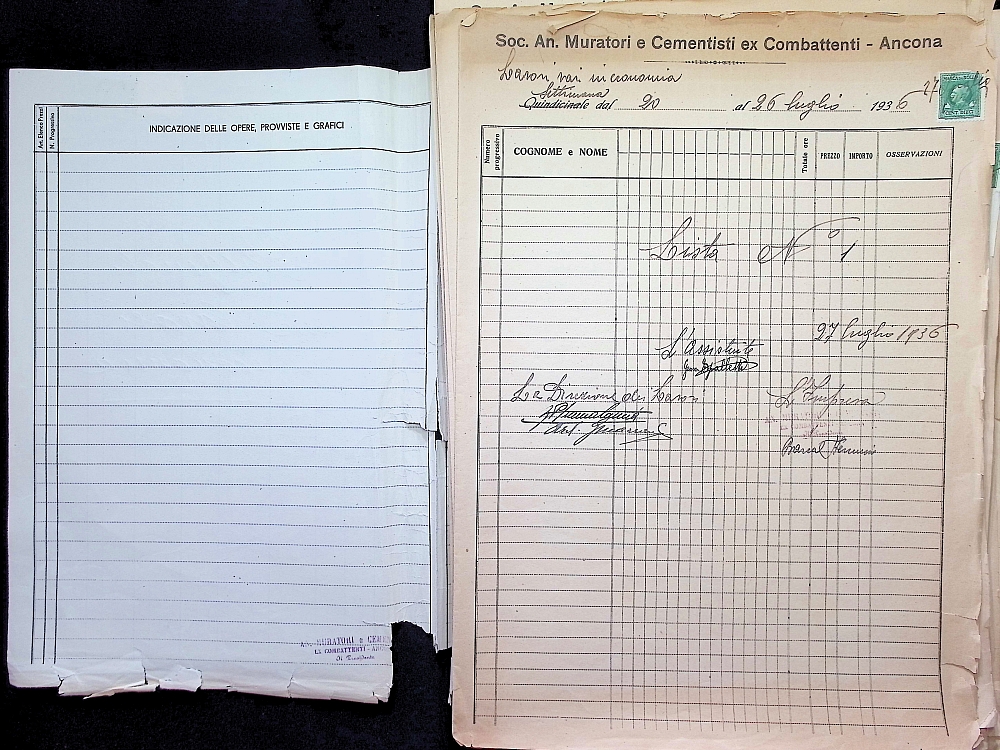 Art. Elenco Prezzi
N. Progressivo
INDICAZIONE DELLE OPERE, PROVVISTE E GRAFICI
MURATORI e CEME
COMBATTENTI - ANC
Il Presidente
Soc. An. Muratori e Cementisti ex Combattenti - Ancona
Lavori vari in economia
Settimana
Quindicinale dal 20 al 26 luglio 1936
27
CENT. DIECI
Numero progressivo
COGNOME e NOME
Totale ore
PREZZO
IMPORTO
OSSERVAZIONI
Lista N° 1
27 luglio 1936
L'Assistente
La Direzione dei Lavori
L'Impresa